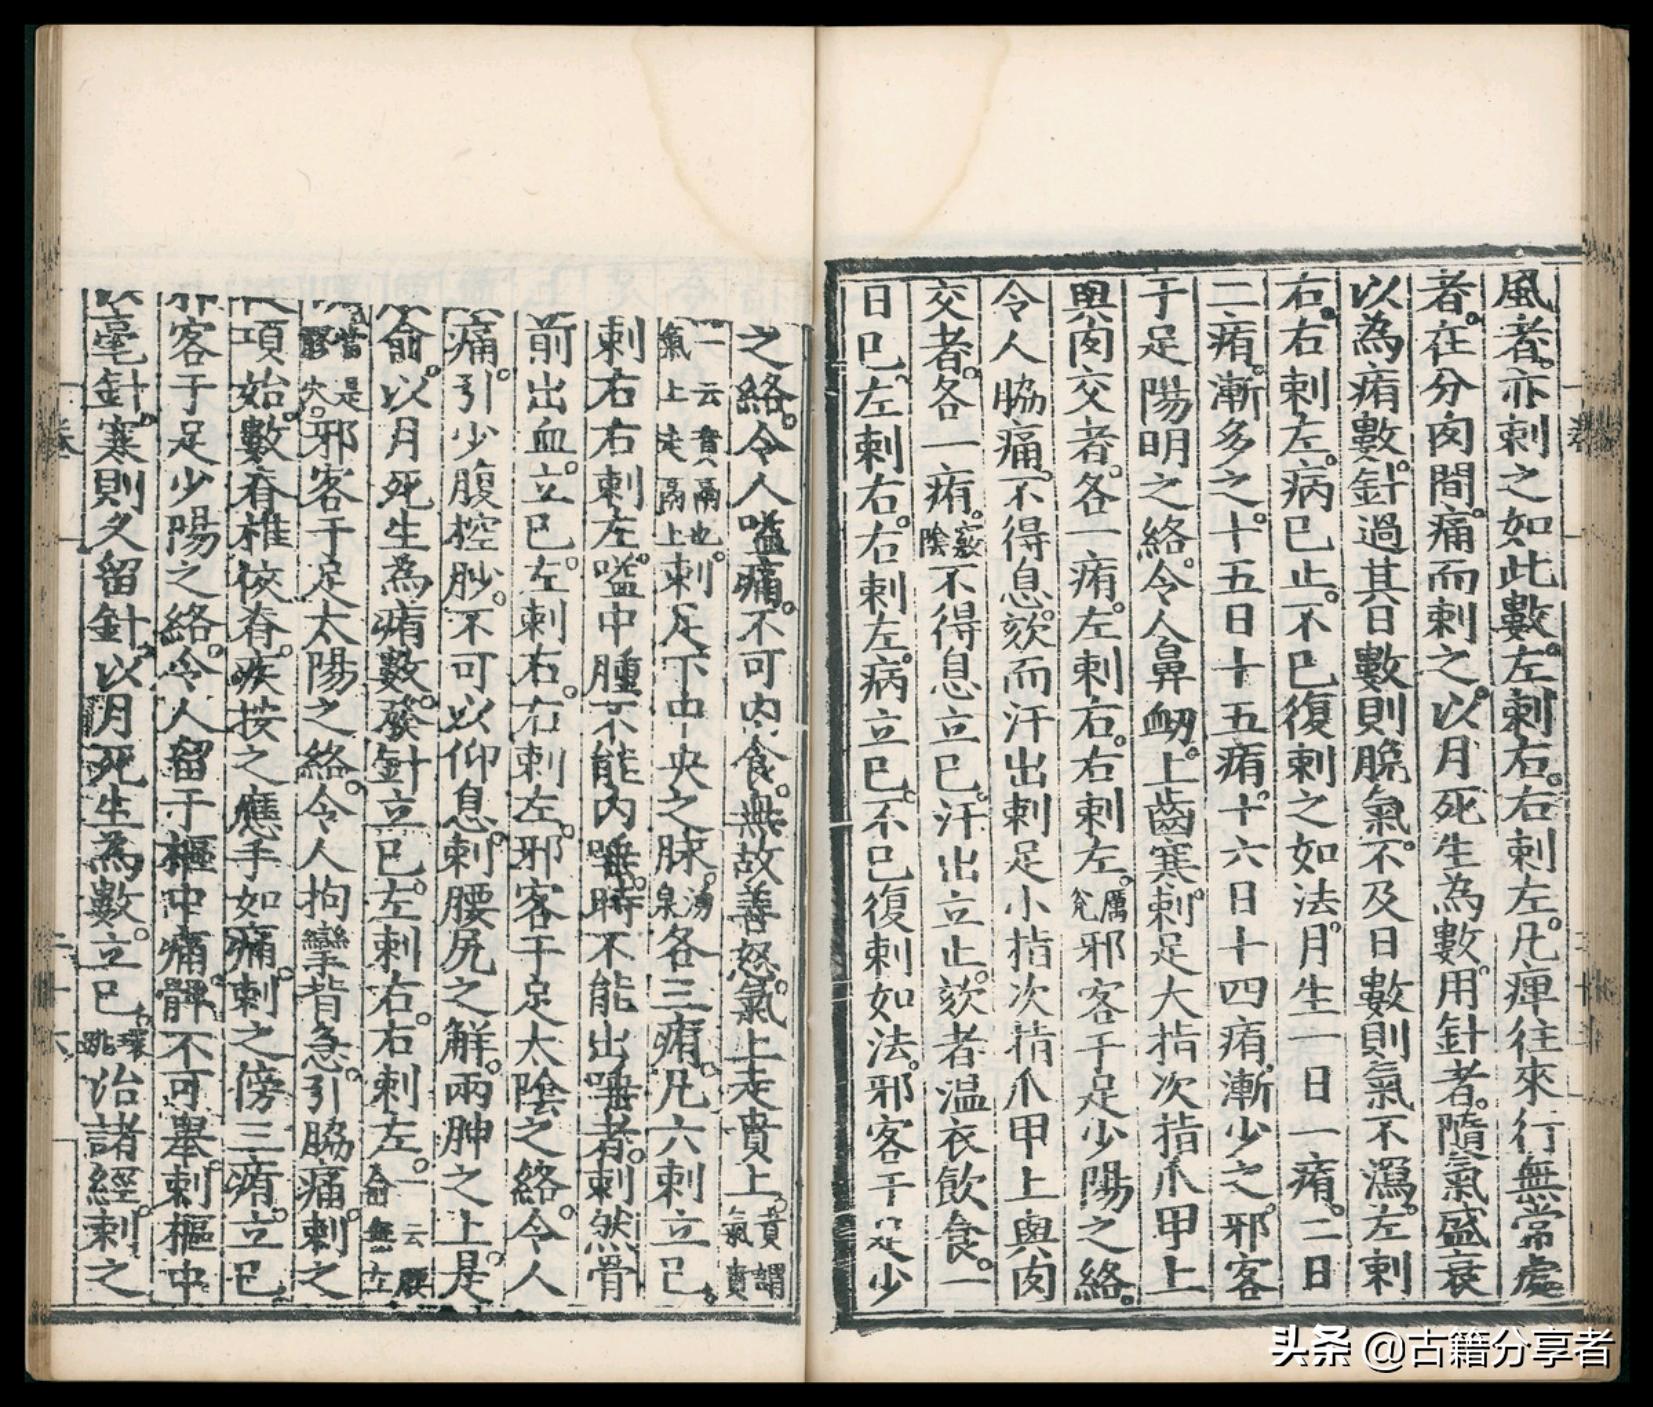 風者。亦刺之如此數。左刺右。右刺左。凡痺往來行無常處
者。在分肉間。痛而刺之。以月死生為數。用針者。隨氣盛衰
以為痏數。針過其日數則脫氣。不及日數則氣不瀉。左刺
右。右刺左。病已止。不已復刺之如法。月生一日一痏。二日
二痏。漸多之。十五日十五痏。十六日十四痏。漸少之。邪客
于足陽明之絡。令人鼻衂。上齒寒。刺足大指次指爪甲上
與肉交者。各一痏。左刺右。右刺左。厲兊邪客于足少陽之絡。
令人脇痛。不得息。欬而汗出刺足小指次指爪甲上與肉
交者。各一痏。竅陰不得息立已。汗出立止。欬者温衣飲食。一
日已。左刺右。右刺左。病立已。不已復刺如法。邪客于足少
之絡。令人嗌痛。不可內食。無故善怒。氣上走賁上。賁謂氣賁
一云賁鬲也。氣上走鬲上刺足下中央之脉。湧泉各三痏。凡六刺立已。
刺右右刺左。嗌中腫不能內唾。時不能出唾者。刺然骨
前出血。立已。左刺右。右刺左。邪客于足太陰之絡。令人
痛。引少腹控䏚。不可以仰息。刺腰尻之解。兩胂之上。是
俞。以月死生為痏數。發針立已。左刺右。右刺左。一云腰俞無左
當是膠穴。邪客于足太陽之絡。令人拘攣背急。引脇痛。刺之
項始。數脊椎俠脊。疾按之應手如痛。刺之傍三痏。立已
客于足少陽之絡。令人留于樞中痛。髀不可舉。刺樞中
毫針。寒則久留針。以月死生為數。立已。環跳治諸經刺之
頭条 @古籍分享者